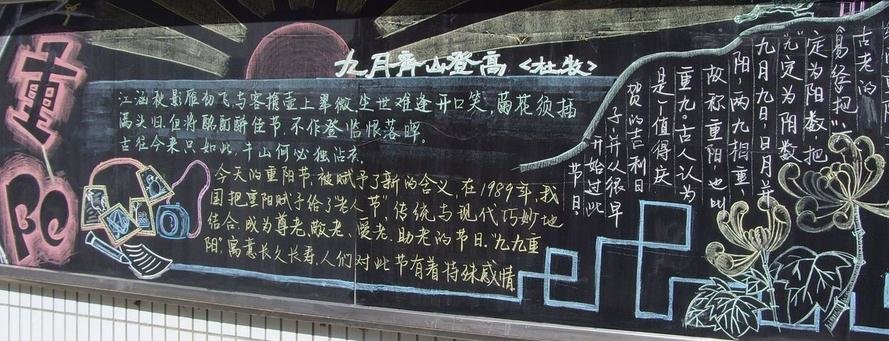 重阳
九月齐山登高<杜牧>
江涵秋影雁初飞与客携壶上翠微生世难逢开口笑,菊花须插
满头归.但将酩酊酬佳节,不作登临恨落晖。
古往今来只如此,牛山何必独沾衣.
今天的重阳节,被赋予了新的含义,在1989年,我
国把重阳赋予给了“老人节”,传统与现代巧妙地
结合,成为尊老、敬老、爱老、助老的节日.“九九重
阳”,寓意长久长寿.人们对此节有着特殊感情
古老的
《易经把“
定为阴数,把
“九”定为阳数
九月九日,日月并
阳,两九相重
故称重阳,也叫
重九。古人认为
是一值得庆
贺的吉利日
子,并从很早
开始过此
节日.